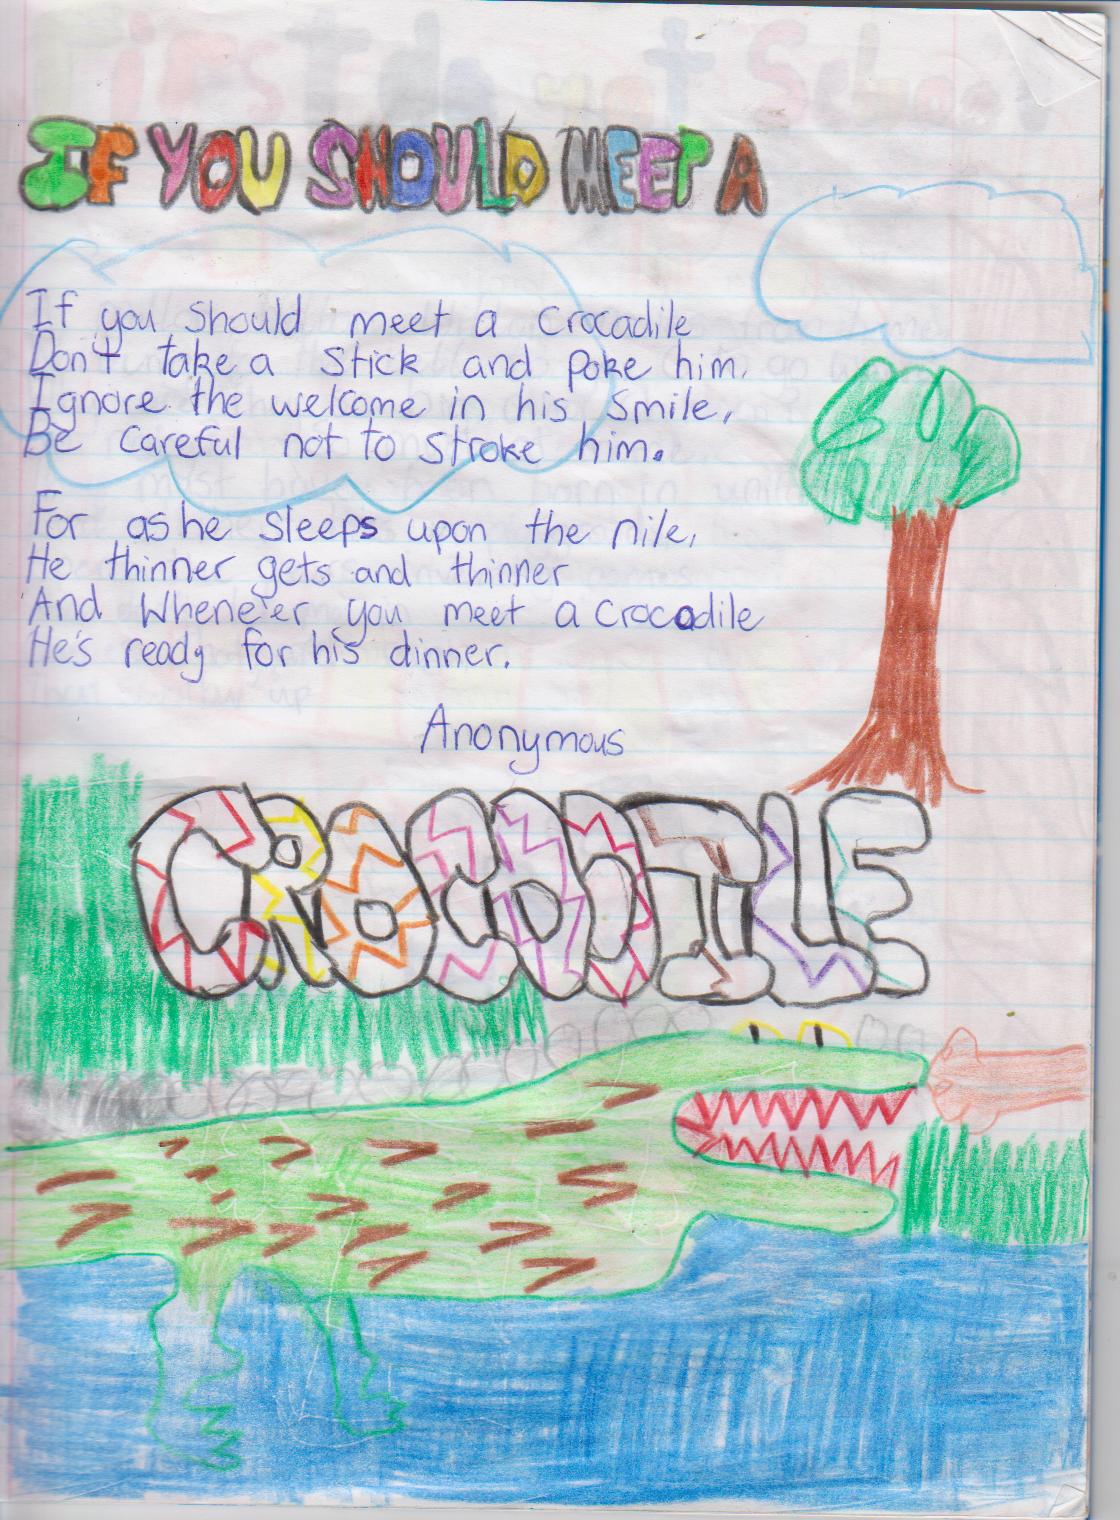 IF YOU SHOULD MEET A
If you should meet a Crocadile
Don't take a stick and poke him.
Ignore the welcome in his smile,
Be careful not to stroke him.
For as he sleeps upon the nile,
He thinner gets and thinner
And Whene'er you meet a Crocadile
He's ready for his dinner.
Anonymous
CROCADILE